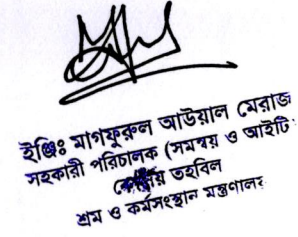 ইঞ্জিঃ মাগফুরুল আউয়াল মেরাজ
সহকারী পরিচালক (সমন্বয় ও আইটি
কেন্দ্রীয় তহবিল
শ্রম ও কর্মসংস্থান মন্ত্রণালয়